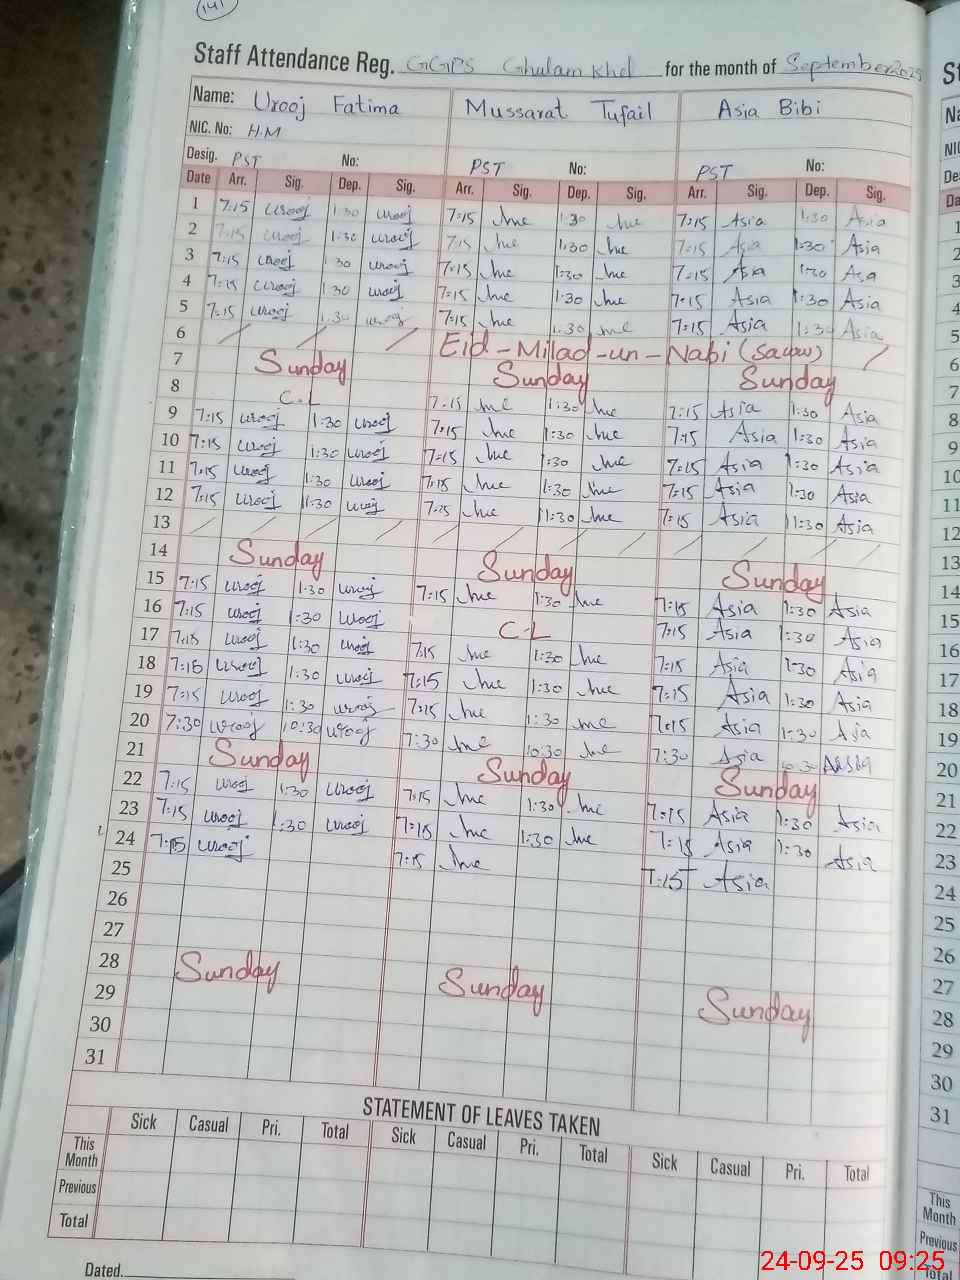 141
Staff Attendance Reg. GGPS Ghulam Khel for the month of September 2025
Name: Urooj Fatima Mussarat Tufail Asia Bibi
NIC. No: H.M
Desig. PST No: PST No: PST No:
Date Arr. Sig. Dep. Sig. Arr. Sig. Dep. Sig. Arr. Sig. Dep. Sig.
1 7:15 Urooj 1:30 Urooj 7:15 1:30 7:15 Asia 1:30 Asia
2 7:15 Urooj 1:30 Urooj 7:15 1:30 7:15 Asia 1:30 Asia
3 7:15 Urooj 1:30 Urooj 7:15 1:30 7:15 Asia 1:30 Asia
4 7:15 Urooj 1:30 Urooj 7:15 1:30 7:15 Asia 1:30 Asia
5 7:15 Urooj 1:30 Urooj 7:15 1:30 7:15 Asia 1:30 Asia
6 Eid-Milad-un-Nabi (saww)
7 Sunday Sunday Sunday
8 C.L 7:15 1:30 7:15 Asia 1:30 Asia
9 7:15 Urooj 1:30 Urooj 7:15 1:30 7:15 Asia 1:30 Asia
10 7:15 Urooj 1:30 Urooj 7:15 1:30 7:15 Asia 1:30 Asia
11 7:15 Urooj 1:30 Urooj 7:15 1:30 7:15 Asia 1:30 Asia
12 7:15 Urooj 1:30 Urooj 7:15 1:30 7:15 Asia 1:30 Asia
13
14 Sunday Sunday Sunday
15 7:15 Urooj 1:30 Urooj 7:15 1:30 7:15 Asia 1:30 Asia
16 7:15 Urooj 1:30 Urooj C-L 7:15 Asia 1:30 Asia
17 7:15 Urooj 1:30 Urooj 7:15 1:30 7:15 Asia 1:30 Asia
18 7:15 Urooj 1:30 Urooj 7:15 1:30 7:15 Asia 1:30 Asia
19 7:15 Urooj 1:30 Urooj 7:15 1:30 7:15 Asia 1:30 Asia
20 7:30 Urooj 10:30 Urooj 7:30 10:30 7:30 Asia 10:30 Asia
21 Sunday Sunday Sunday
22 7:15 Urooj 1:30 Urooj 7:15 1:30 7:15 Asia 1:30 Asia
23 7:15 Urooj 1:30 Urooj 7:15 1:30 7:15 Asia 1:30 Asia
24 7:15 Urooj 7:15 7:15 Asia
25
26
27
28 Sunday Sunday Sunday
29
30
31
STATEMENT OF LEAVES TAKEN
Sick Casual Pri. Total Sick Casual Pri. Total Sick Casual Pri. Total
This Month
Previous
Total
Dated.
24-09-25 09:25